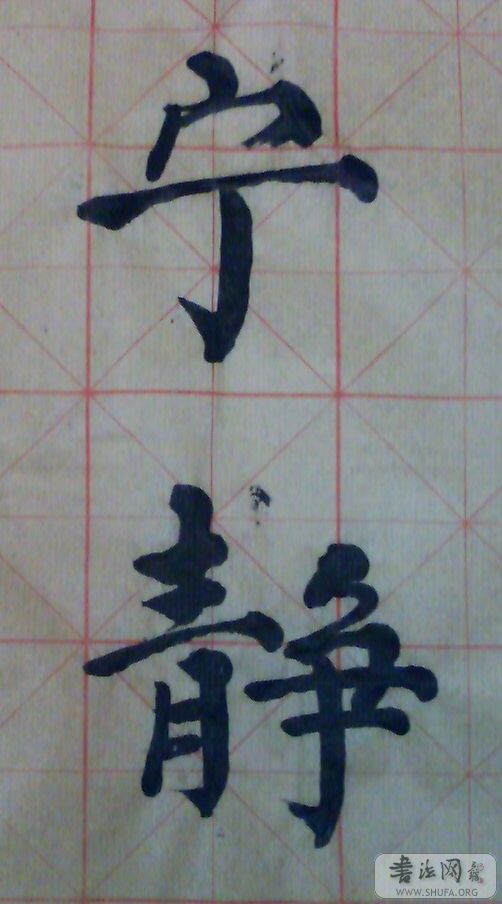 宁静
书法网
WWW.SHUFA.ORG